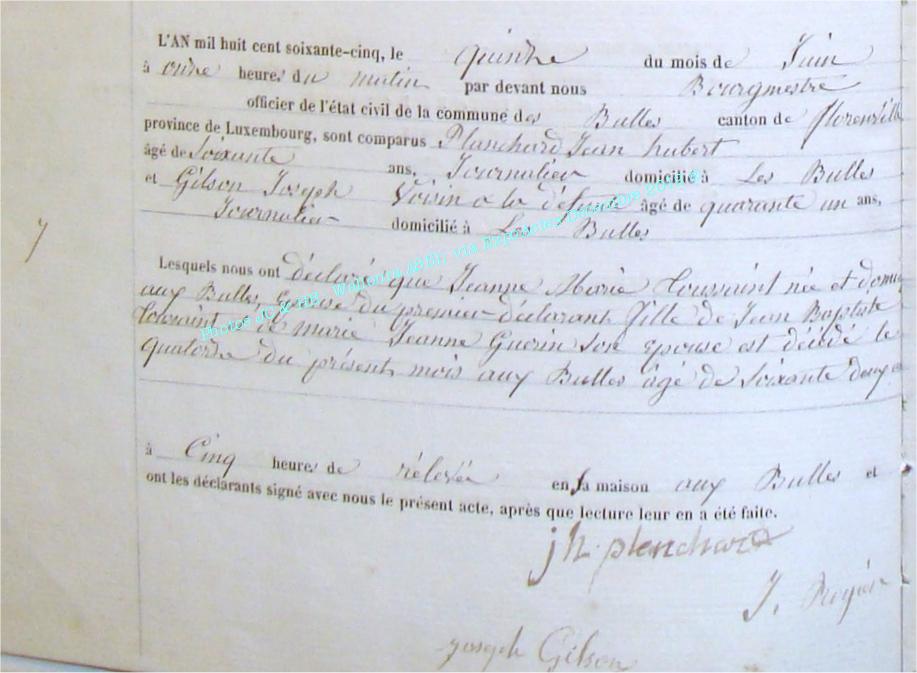 L'AN mil huit cent soixante-cinq, le quinze du mois de Juin
à onze heures du matin par devant nous Bourgmestre
officier de l'état civil de la commune des Bulles canton de florenville
province de Luxembourg, sont comparus Planchard Jean hubert
âgé de Soixante ans, Journalier domicilié à Les Bulles
et Gilson Joseph Voisin a la défunte âgé de quarante un ans,
Journalier domicilié à Les Bulles
7
Lesquels nous ont déclaré que Jeanne Marie Toussaint née et domi
aux Bulles, épouse du premier déclarant fille de Jean Baptiste
Toussaint et de marie Jeanne Guerin Son epouse est décédé le
quatorze du présent mois aux Bulles âgé de Soixante deux
à Cinq heures de rélevée en sa maison aux Bulles et
ont les déclarants signé avec nous le présent acte, après que lecture leur en a été faite.
jh planchard
J.
joseph Gilson
Photos JC & MR, Wallonica ASBL via Expoactes Décembre